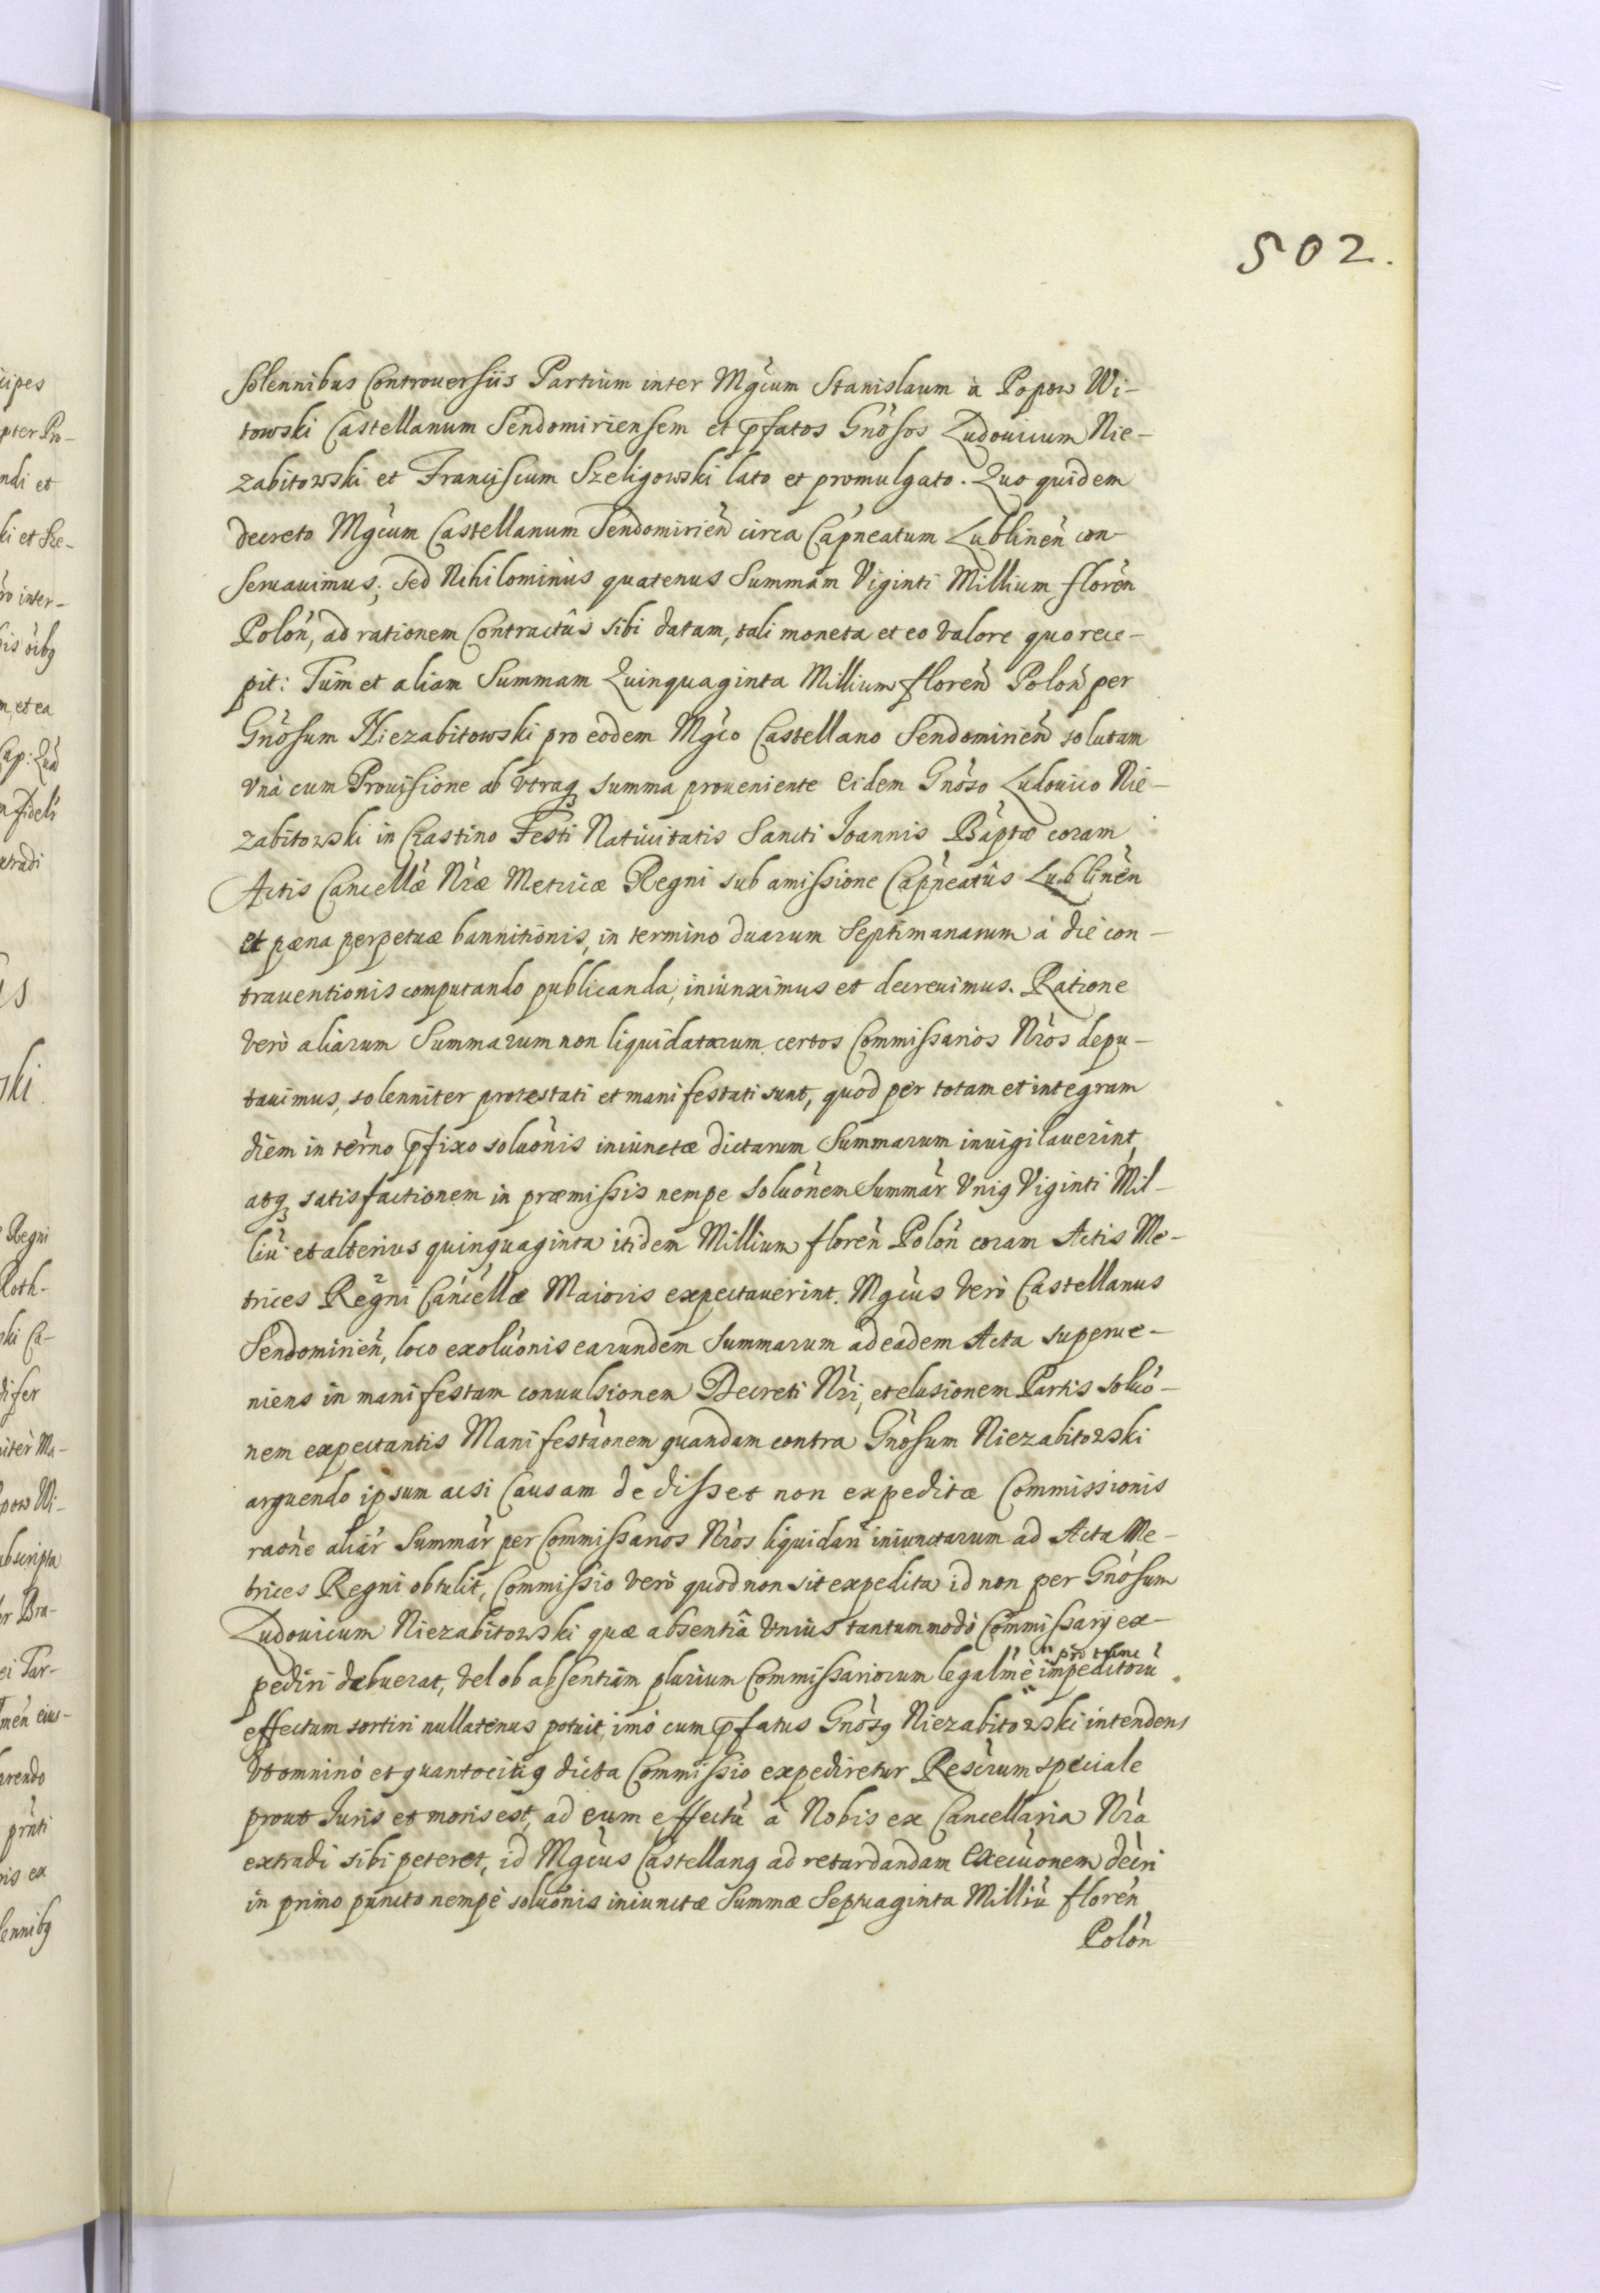 502.
Solennibus Controuersiis Partium inter Mgcum Stanislaum à Popow Wi-
towski Castellanum Sendomiriensem et pfatos Gnosos Ludouicum Nie-
zabitowski et Franciscum Szeligowski lato et promulgato. Quo quidem
decreto Mgcum Castellanum Sendomirien circa Capneatum Lublinen con-
seruauimus; Sed Nihilominùs quatenus Summam Viginti Millium floren
Polon, ad rationem Contractûs sibi datam, tali moneta et eo valore quo rece-
pit: Tum et aliam Summam Quinquaginta Millium floren Polon per
Gnosum Niezabitowski pro eodem Mgco Castellano Sendomirien solutam
vnà cum Prouisione ab vtraq summa proueniente eidem Gnoso Ludouico Nie-
zabitowski in Crastino Festi Natiuitatis Sancti Joannis Baptæ coram
Actis Cancellæ Nræ Metricæ Regni sub amissione Capneatûs Lublinen
et pæna perpetuæ bannitionis, in termino duarum Septimanarum à die con-
trauentionis computando publicanda, iniunximus et decreuimus. Ratione
verò aliarum Summarum non liquidatarum certos Commissarios Nros depu-
tauimus, solenniter protestati et manifestati sunt, quod per totam et integram
diem in terno pfixo soluonis iniunctæ dictarum Summarum inuigilauerint,
atq satisfactionem in præmissis nempe soluonem Summar Vnig Viginti Mil-
liu et alterius quinquaginta itidem Millium floren Polon coram Actis Me-
trices Regni Cancellæ Maioris expectauerint. Mgcus verò Castellanus
Sendomirien, loco exoluonis earundem Summarum ad eadem Acta superue-
niens in manifestam conuulsionem Decreti Nri, et elusionem Partis soluo-
nem expectantis Manifestaonem quandam contra Gnosum Niezabitowski
arguendo ipsum acsi Causam dedisset non expeditæ Commissionis
raone aliar Summar per Commissarios Nros liquidari iniunctarum ad Acta Me-
trices Regni obtulit, Commissio verò quod non sit expedita id non per Gnosum
Ludouicum Niezabitowski quæ absentiâ vnius tantummodò Commissarij ex-
pro tunc
pediri debuerat, vel ob absentiam plurium Commissariorum legalmè impeditoru
effectum sortiri nullatenus potuit, imò cum pfatus Gnosg Niezabitowski intendens
vt omninò et quantocitig dicta Commissio expediretur Rescrum speciale
prout Juris et moris est, ad eum effectu à Nobis ex Cancellaria Nra
extradi sibi peteret, id Mgcus Castellang ad retardandam execuonem decri
in primo puncto nempè soluonis iniunctæ Summæ Septuaginta Milliu floren
Polon